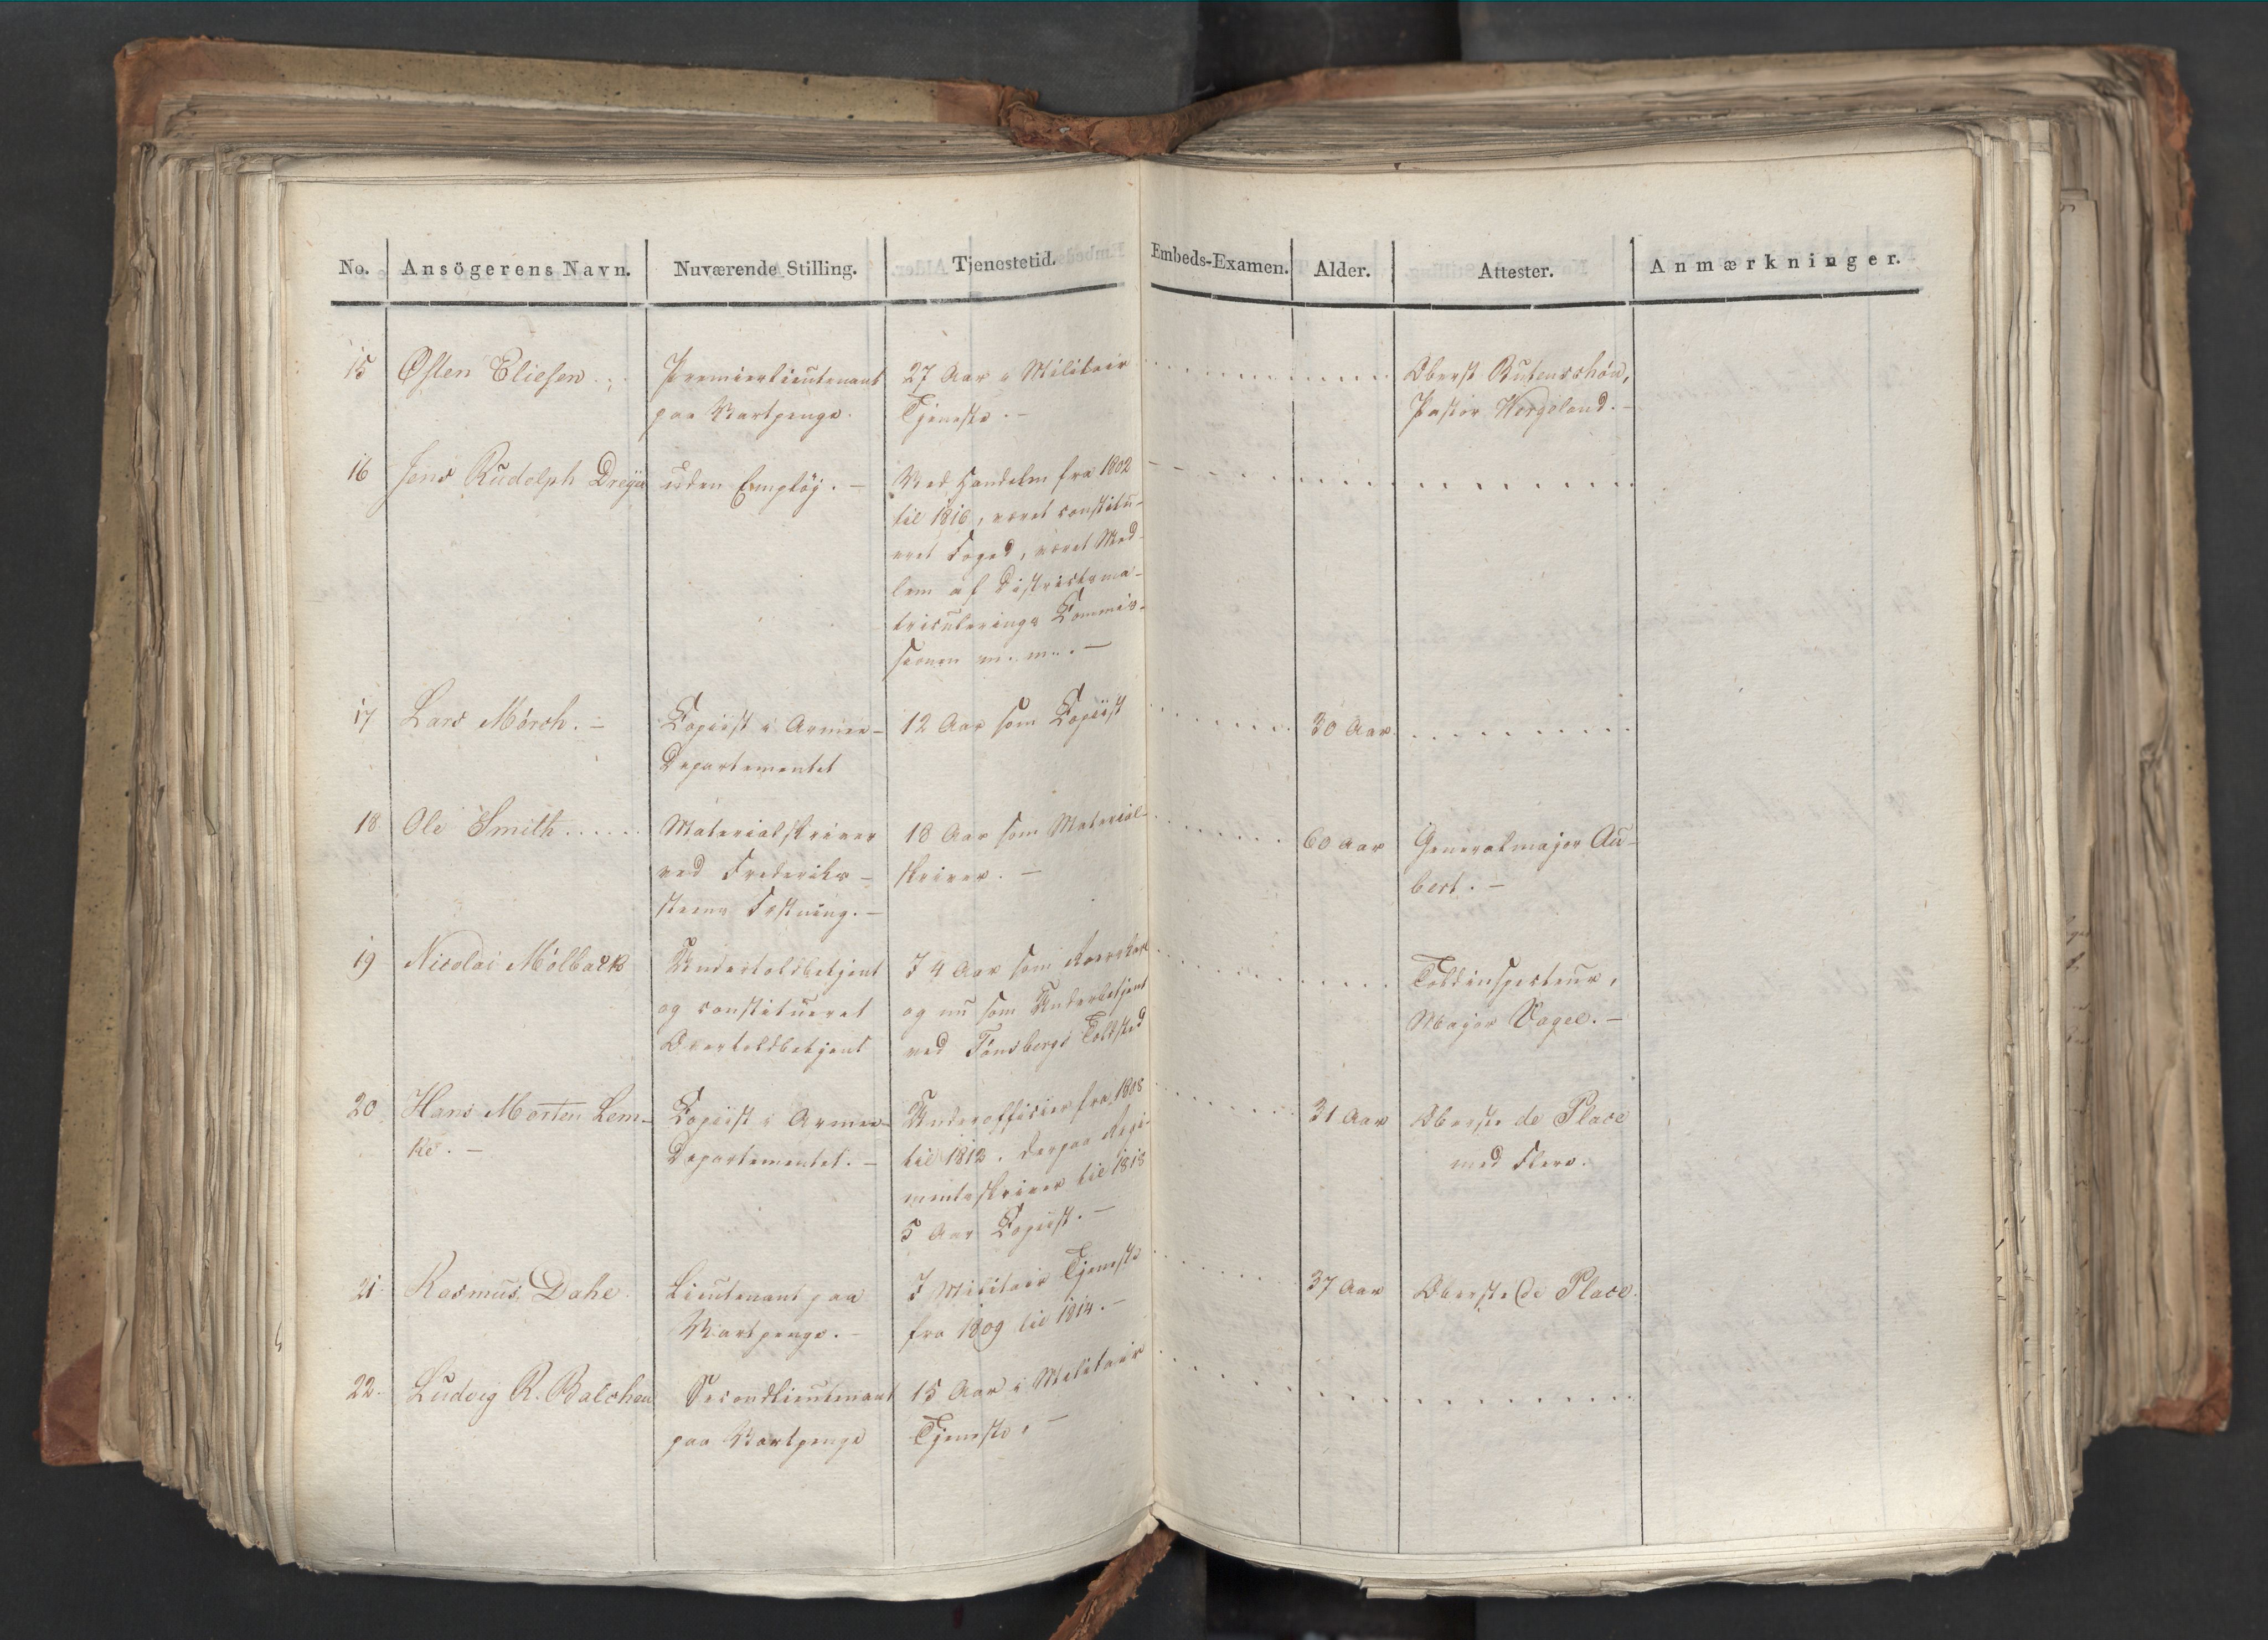 No. Ansögerens Navn. Nuværende Stilling. Tjenestetid. Embeds-Examen. Alder. Attester. Anmærkninger.
15 Østen Eliesen Premierlieutenant 27 Aar i Militair Oberst Butenschön,
paa Vartpenge. Tjeneste. — Pastor Wergeland. —
16 Jens Rudolph uden Employ. — Ved Handelen fra 1802
til 1816, været constitu-
eret Foged, været Med-
lem af Districtsma-
triculerings Commis-
sionen m. m. —
17 Lars Mörch. — Copiist i Armee- 12 Aar som Copiist 30 Aar
Departementet
18 Ole Smith Materialskriver 18 Aar som Material- 60 Aar Generalmajor Au-
ved Frederik- skriver. — bert. —
steens Fæstning. —
19 Nicolai Mölback Undertoldbetjent I 4 Aar som Toldinspecteur,
og constitueret og nu som Underbetjent Major Vogel. —
Overtoldbetjent ved Tönsbergs Toldsted
20 Hans Morten Lem- Copiist i Armee- Underofficier fra 1808 31 Aar Oberste de Place
ke. — Departementet. — til 1812. Derpaa Regi- med Flere.
mentsskriver til 1818
5 Aar Copiist. —
21 Rasmus Dahe Lieutenant paa I Militair Tjeneste 37 Aar Oberste de Place.
Vartpenge. — fra 1809 til 1814. —
22 Ludvig R. Balchen Secondlieutenant 15 Aar i Militair
paa Vartpenge Tjeneste. —